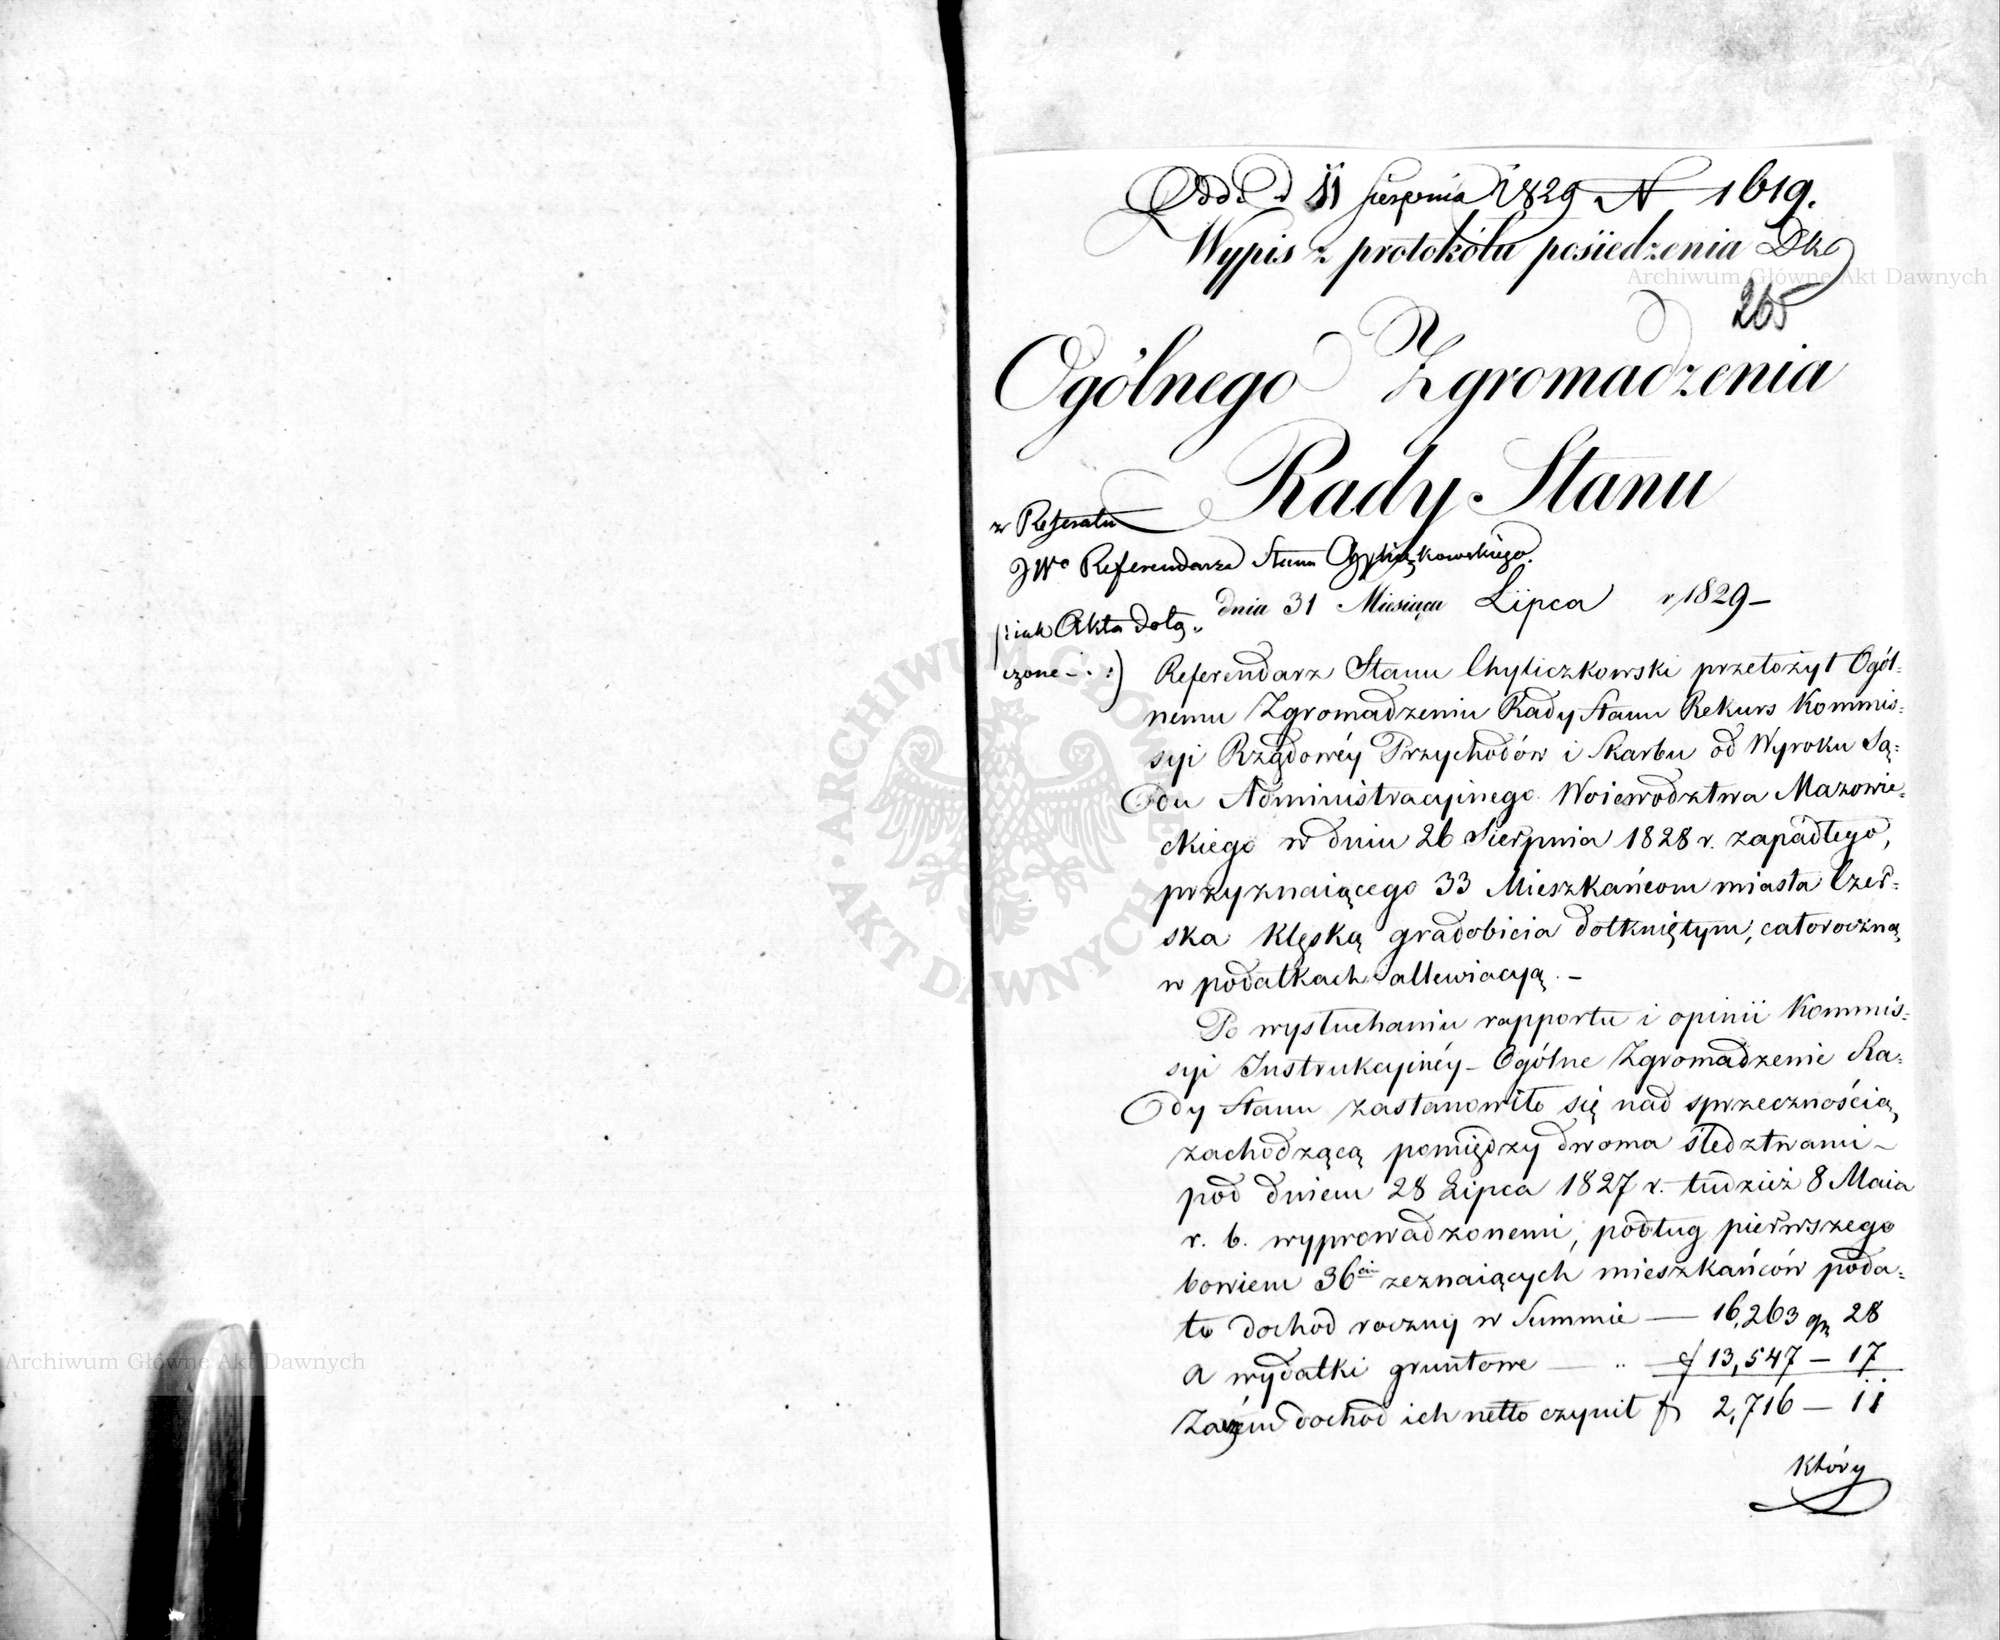 Odd. d. 11 Sierpnia 1829 N 1619.
Wypis z protokółu posiedzenia
265
Ogólnego Zgromadzenia
Rady Stanu
z Referatu
JWo Referendarza Stanu Chyliczkowskiego.
dnia 31 Miesiąca Lipca r 1829 –
/: iak Akta dołą„
czone – . :)
Referendarz Stanu Chyliczkowski przełożył Ogól=
nemu Zgromadzeniu Rady Stanu Rekurs Kommis=
syi Rządowéy Przychodów i Skarbu od Wyroku Są=
du Administracyinego Woiewodztwa Mazowie=
ckiego w dniu 26 Sierpnia 1828 r. zapadłego,
przyznaiącego 33 Mieszkańcom miasta Czer=
ska klęską gradobicia dotkniętym, całoroczną
w podatkach allewiacyą. –
Po wysłuchaniu rapportu i opinii Kommis=
syi Instrukcyinéy – Ogólne Zgromadzenie Ra=
dy Stanu zastanowiło się nad sprzecznością
zachodzącą pomiędzy dwoma śledztwami –
pod dniem 28 Lipca 1827 r. tudzież 8 Maia
r. b. wyprowadzonemi, podług pierwszego
bowiem 36ciu zeznaiących mieszkańców poda=
ło dochód roczny w Summie — 16,263 gr 28
a wydatki gruntowe — „ f 13,547 – 17
Zaczém dochód ich netto czynił f 2,716 – 11
który
Archiwum Główne Akt Dawnych
Archiwum Główne Akt Dawnych
ARCHIWUM GŁÓWNE AKT DAWNYCH